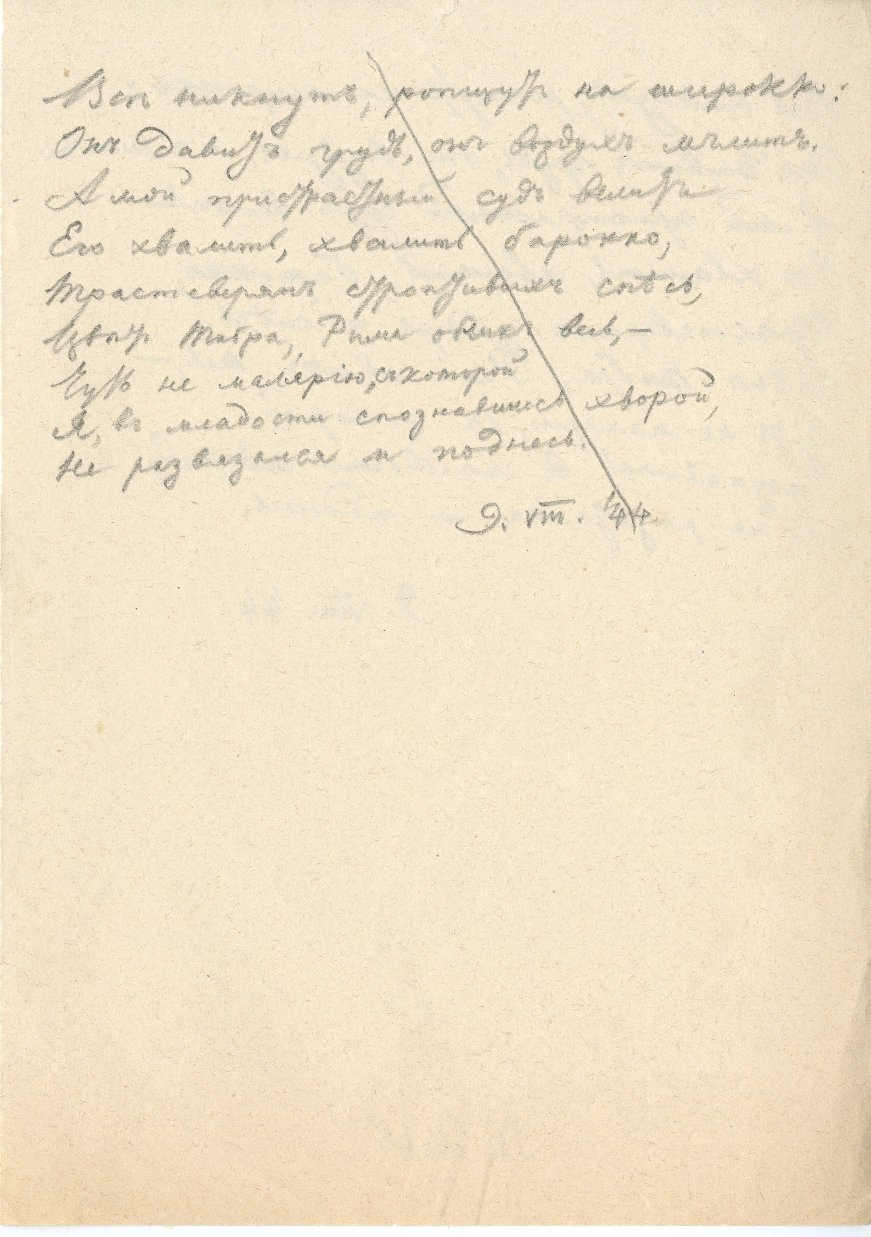 Всѣ никнутъ, ропщутъ на широкко:
Онъ давитъ грудь, онъ воздухъ мглитъ.
А мой пристрастный судъ велитъ
Его хвалить, хвалить барокко,
Трастеверянъ строптивыхъ спѣсь,
Цвѣтъ Тибра, Рима обликъ весь,—
Чуть не малярію, съ которой
Я, въ младости спознавшись хворой,
Не развязался и поднесь.
9. VIII. '44